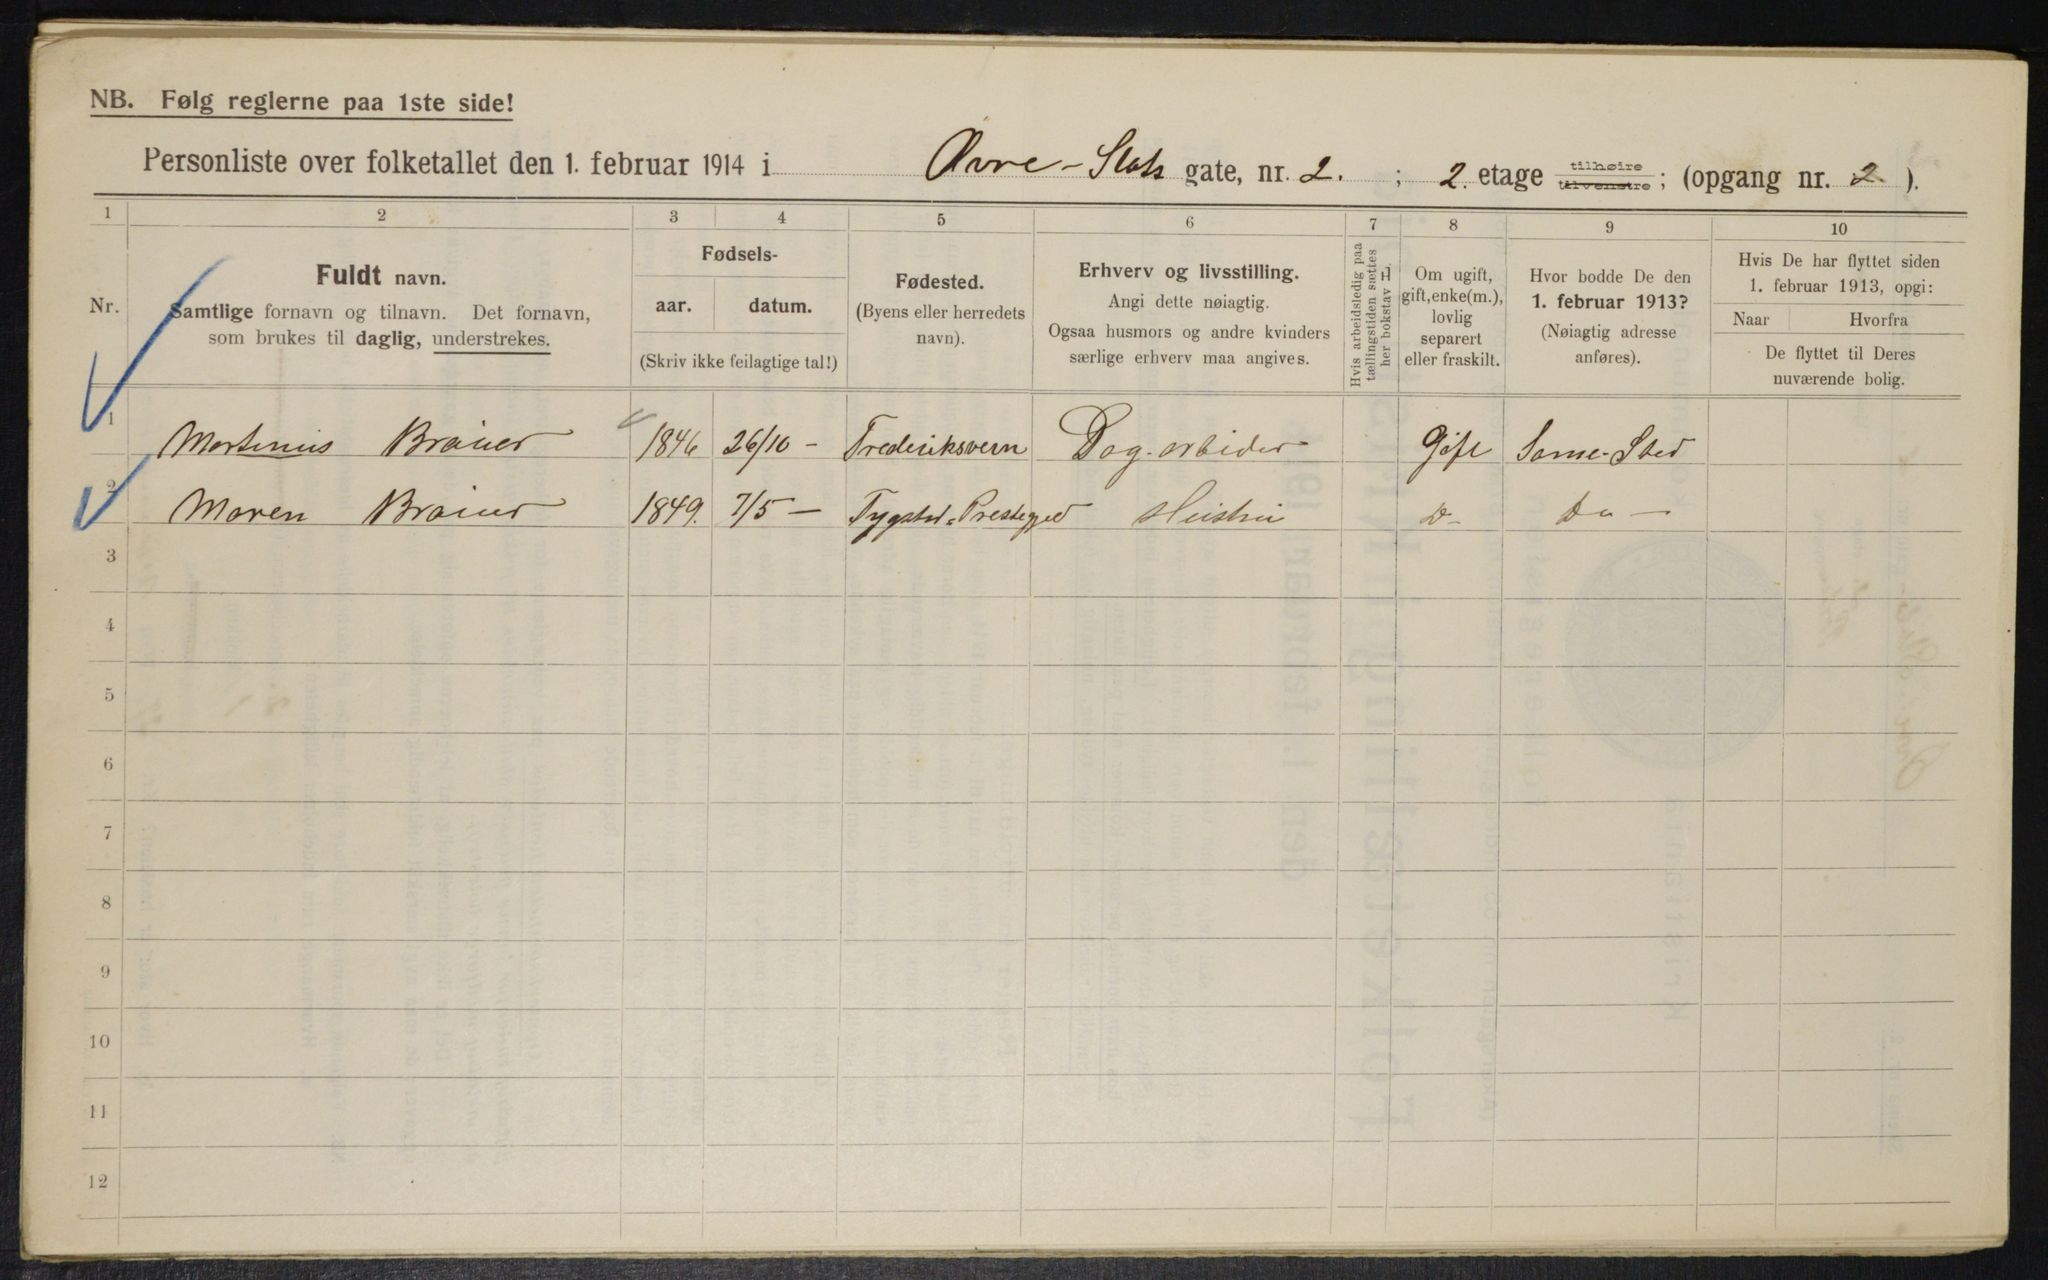 NB. Følg reglerne paa 1ste side!
Personliste over folketallet den 1. februar 1914 i Øvre-Slots gate, nr. 2. ; 2. etage tilhøire tilvenstre; (opgang nr. 2. ).
1 2 3 4 5 6 7 8 9 10
Nr.
Fuldt navn.
Samtlige fornavn og tilnavn. Det fornavn,
som brukes til daglig, understrekes.
Fødsels-
aar. datum.
(Skriv ikke feilagtige tal!)
Fødested.
(Byens eller herredets
navn).
Erhverv og livsstilling.
Angi dette nøiagtig.
Ogsaa husmors og andre kvinders
særlige erhverv maa angives.
Hvis arbeidsledig paa
tællingstiden sættes
her bokstav L.
Om ugift,
gift, enke(m.),
lovlig
separert
eller fraskilt.
Hvor bodde De den
1. februar 1913?
(Nøiagtig adresse
anføres).
Hvis De har flyttet siden
1. februar 1913, opgi:
Naar Hvorfra
De flyttet til Deres
nuværende bolig.
1 Martinius Brauer 1846 26/10 - Frederiksvern Dag-arbider Gift Same-Sted
2 Maren Brauer 1849. 7/5 - Hustru Do - Do -
3
4
5
6
7
8
9
10
11
12